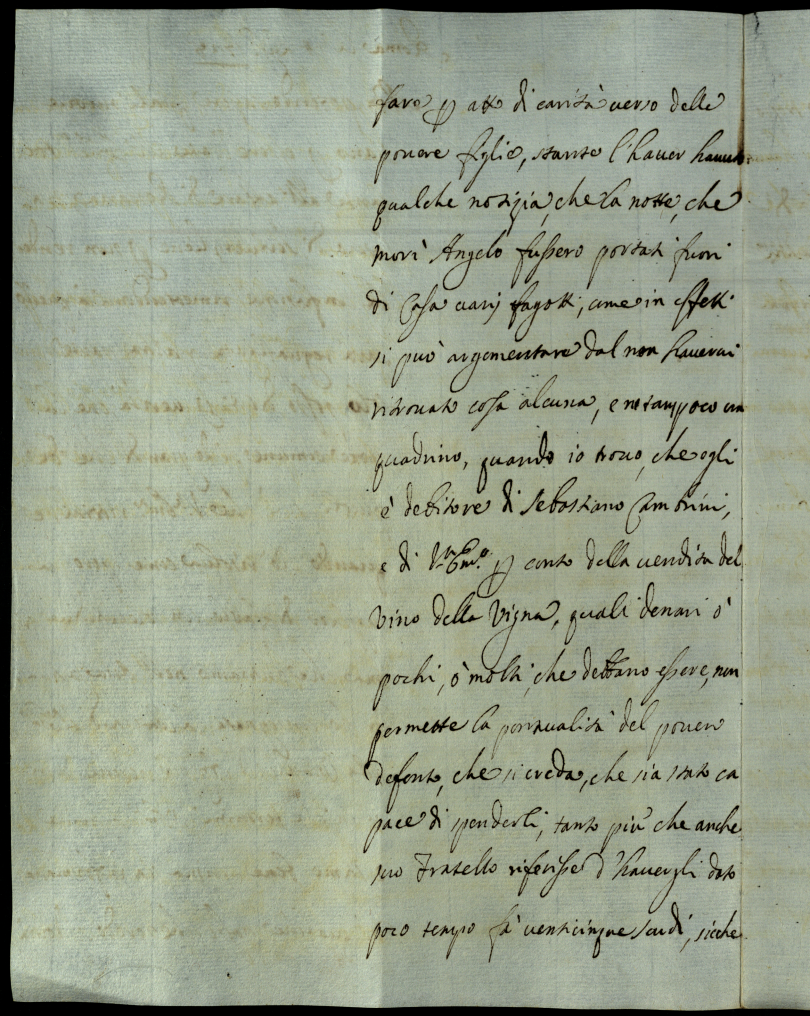 farò p atto di carità verso delle
povere figlie, stante l'haver havuto
qualche notizia, che la notte, che
morì Angelo fussero portati fuori
di Casa varij fagotti, come in effetti
si può argomentare dal non havervi
ritrovato cosa alcuna, e ne tampoco un
quadrino, quando io trovo, che egli
è debitore di Sebastiano Cambrini,
e di p conto della vendita del
vino della Vigna, quali denari ò
pochi, ò molti, che debbano essere, non
permette la pontualità del povero
defonto, che si creda, che sia stato ca
pace di spenderli, tanto più che anche
suo Fratello riferisse d'havergli dato
poco tempo fà venticinque scudi, sicche